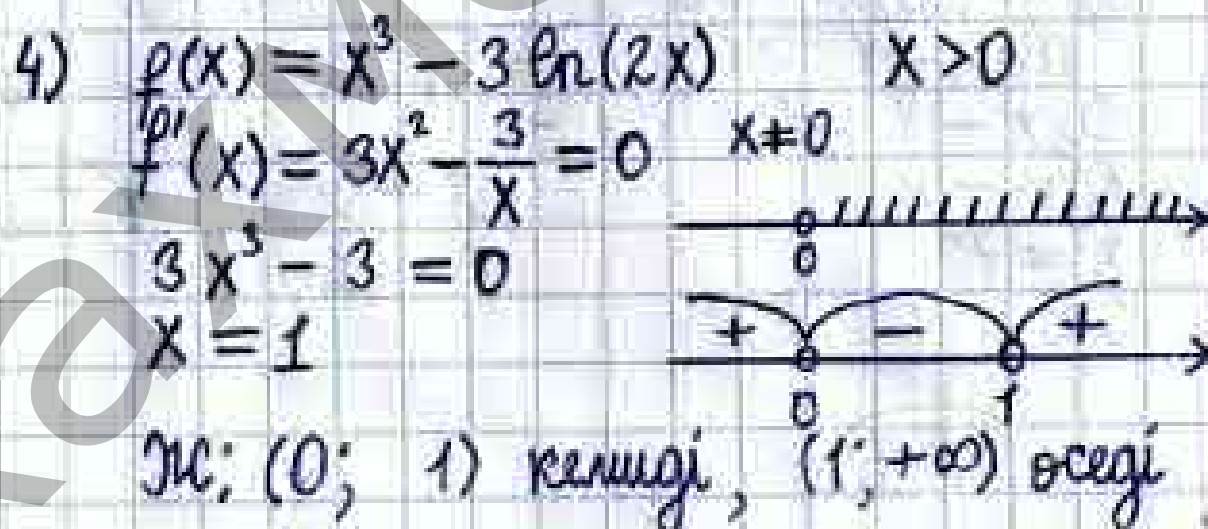 4) f(x) = x³ - 3 ln(2x) x > 0
f'(x) = 3x² - 3/x = 0 x ≠ 0
0
3x³ - 3 = 0
+ - +
x = 1
0 1
Ж; (0; 1) кемиді, (1; +∞) өседі